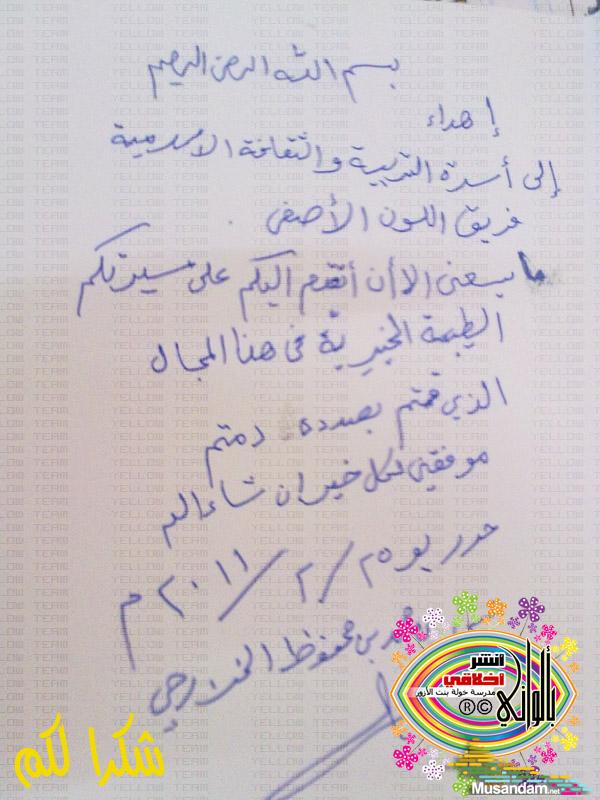 بسم الله الرحمن الرحيم
إهداء
إلى أسرة التربية والثقافة الاسلامية
فريق اللون الأصفر
ما يسعني الا أن أتقدم اليكم على مسيرتكم
الطيبة الخيرية في هذا المجال
الذي قمتم بصدده دمتم
موفقين لكل خير ان شاء الله
حرر يوم ٢٥/٢/٢٠١١ م
محمد بن محفوظ الخزرجي
بألواني
انشر
أخلاقي
مدرسة خولة بنت الأزور
® ©
شكرا لكم
Musandam.net
YELLOW TEAM